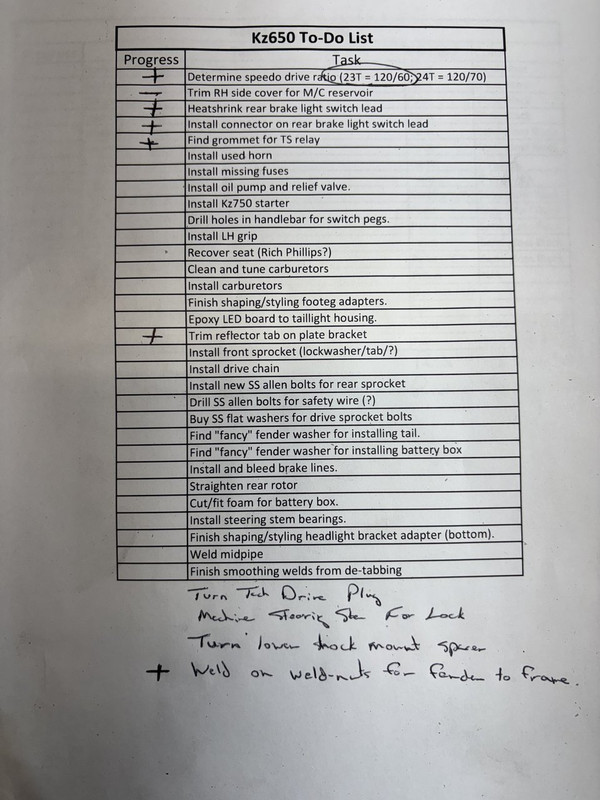 Kz650 To-Do List
Progress Task
+ Determine speedo drive ratio (23T = 120/60; 24T = 120/70)
— Trim RH side cover for M/C reservoir
+ Heatshrink rear brake light switch lead
+ Install connector on rear brake light switch lead
+ Find grommet for TS relay
Install used horn
Install missing fuses
Install oil pump and relief valve.
Install Kz750 starter
Drill holes in handlebar for switch pegs.
Install LH grip
Recover seat (Rich Phillips?)
Clean and tune carburetors
Install carburetors
Finish shaping/styling footeg adapters.
Epoxy LED board to taillight housing.
+ Trim reflector tab on plate bracket
Install front sprocket (lockwasher/tab/?)
Install drive chain
Install new SS allen bolts for rear sprocket
Drill SS allen bolts for safety wire (?)
Buy SS flat washers for drive sprocket bolts
Find "fancy" fender washer for installing tail.
Find "fancy" fender washer for installing battery box
Install and bleed brake lines.
Straighten rear rotor
Cut/fit foam for battery box.
Install steering stem bearings.
Finish shaping/styling headlight bracket adapter (bottom).
Weld midpipe
Finish smoothing welds from de-tabbing
Turn Tach Drive Plug
Machine Steering Stem For Lock
Turn lower shock mount spacer
+ Weld on weld-nuts for fender to frame.